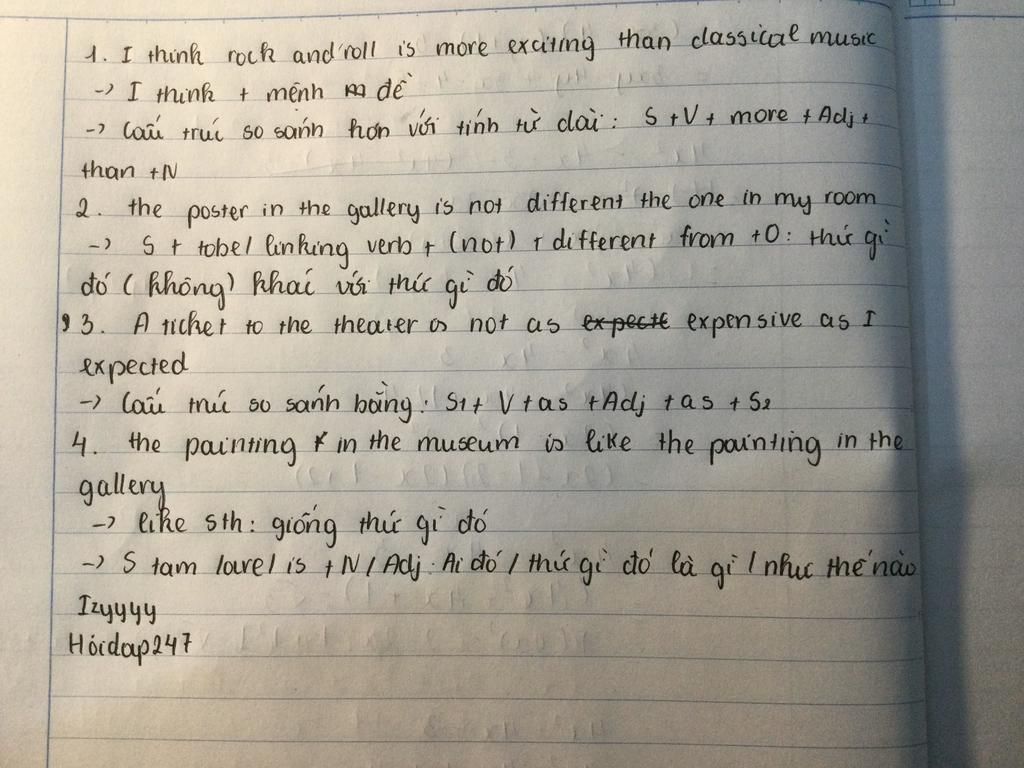 1. I think rock and roll is more exciting than classical music
-> I think + mệnh đề
-> Cấu trúc so sánh hơn với tính từ dài: S + V + more + Adj +
than + N
2. the poster in the gallery is not different the one in my room
-> S + tobe / linking verb + (not) + different from + O: thứ gì
đó (không) khác với thứ gì đó
3. A ticket to the theater is not as expecte expensive as I
expected
-> Cấu trúc so sánh bằng: S1 + V + as + Adj + as + S2
4. the painting in the museum is like the painting in the
gallery
-> like sth: giống thứ gì đó
-> S + am / are / is + N / Adj: Ai đó / thứ gì đó là gì / như thế nào
Izyyyy
Hóidap247